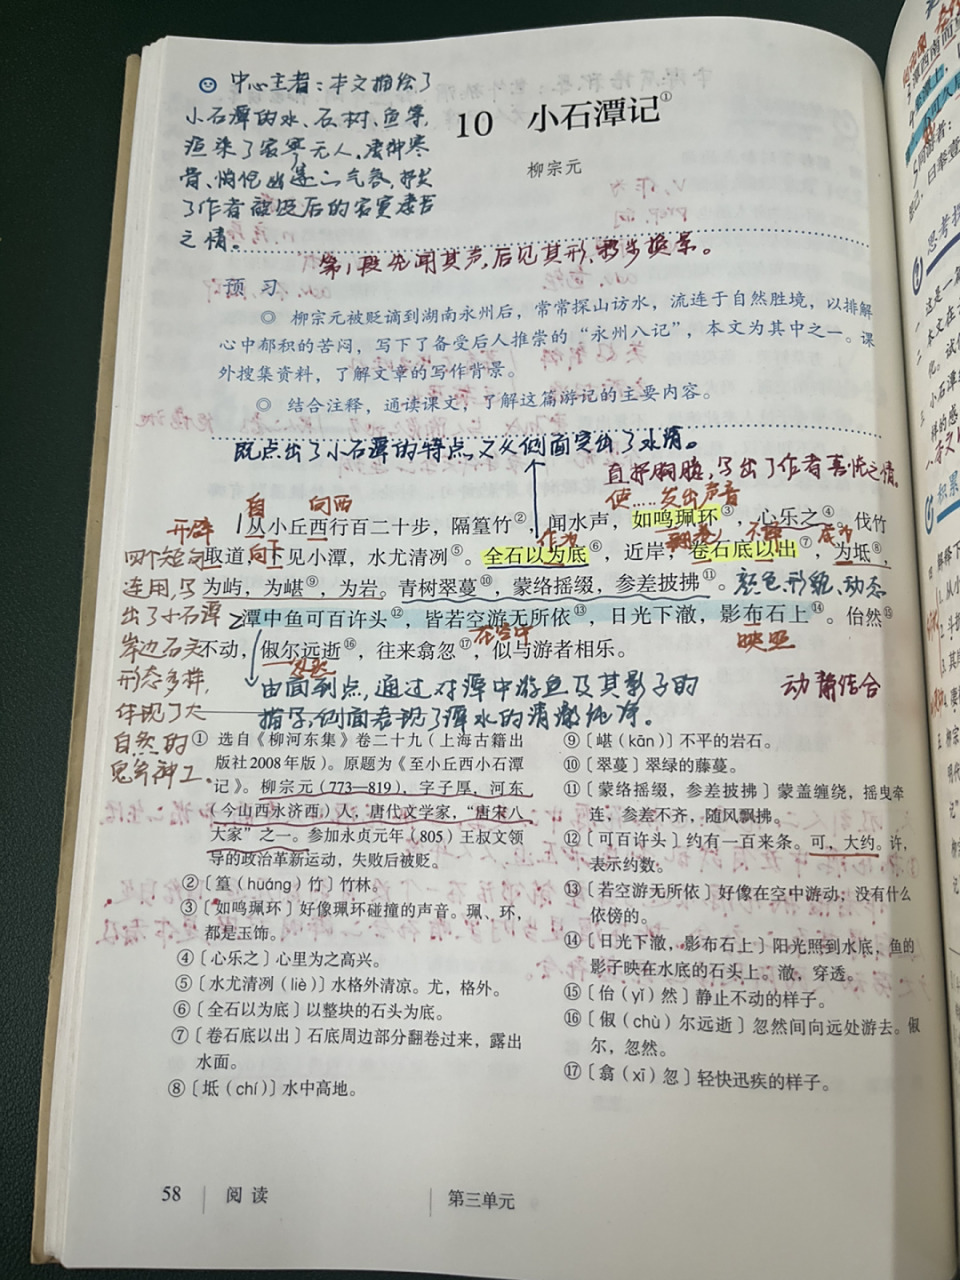 中心主旨：本文描绘了
小石潭的水、石、树、鱼等，
渲染了寂寥无人、凄神寒
骨、悄怆幽邃的气氛，抒发
了作者被贬后的
之情。
10 小石潭记①
柳宗元
第1段先闻其声，后见其形，移步换景。
预 习
◎ 柳宗元被贬谪到湖南永州后，常常探山访水，流连于自然胜境，以排解
心中郁积的苦闷，写下了备受后人推崇的“永州八记”，本文为其中之一。课
外搜集资料，了解文章的写作背景。
◎ 结合注释，通读课文，了解这篇游记的主要内容。
既点出了小石潭的特点，又从侧面突出了水清。
直抒胸臆，写出了作者喜悦之情。
自 向西 使……发出声音
从小丘西行百二十步，隔篁竹②，闻水声，如鸣珮环③，心乐之④。伐竹
开辟 向下 作为 翻卷 成为
取道，下见小潭，水尤清冽⑤。全石以为底⑥，近岸，卷石底以出⑦，为坻⑧，
为屿，为嵁⑨，为岩。青树翠蔓⑩，蒙络摇缀，参差披拂⑪。
颜色、形貌、动态
潭中鱼可百许头⑫，皆若空游无所依⑬，日光下澈，影布石上⑭。佁然⑮
在空中 映照
不动，俶尔远逝⑯，往来翕忽⑰，似与游者相乐。
忽然
四个短句
连用，写
出了小石潭
岸边石头
形态多样，
体现了大
自然的
鬼斧神工。
由面到点，通过对潭中游鱼及其影子的
描写，侧面表现了潭水的清澈纯净。
动静结合
① 选自《柳河东集》卷二十九（上海古籍出
版社2008年版）。原题为《至小丘西小石潭
记》。柳宗元（773—819），字子厚，河东
（今山西永济西）人，唐代文学家，“唐宋八
大家”之一。参加永贞元年（805）王叔文领
导的政治革新运动，失败后被贬。
②〔篁（huáng）竹〕竹林。
③〔如鸣珮环〕好像珮环碰撞的声音。珮、环，
都是玉饰。
④〔心乐之〕心里为之高兴。
⑤〔水尤清冽（liè）〕水格外清凉。尤，格外。
⑥〔全石以为底〕以整块的石头为底。
⑦〔卷石底以出〕石底周边部分翻卷过来，露出
水面。
⑧〔坻（chí）〕水中高地。
⑨〔嵁（kān）〕不平的岩石。
⑩〔翠蔓〕翠绿的藤蔓。
⑪〔蒙络摇缀，参差披拂〕蒙盖缠绕，摇曳牵
连，参差不齐，随风飘拂。
⑫〔可百许头〕约有一百来条。可，大约。许，
表示约数。
⑬〔若空游无所依〕好像在空中游动，没有什么
依傍的。
⑭〔日光下澈，影布石上〕阳光照到水底，鱼的
影子映在水底的石头上。澈，穿透。
⑮〔佁（yǐ）然〕静止不动的样子。
⑯〔俶（chù）尔远逝〕忽然间向远处游去。俶
尔，忽然。
⑰〔翕（xī）忽〕轻快迅疾的样子。
58 阅读 第三单元